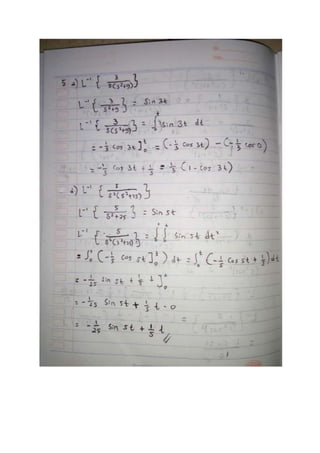 5 a) L⁻¹ { 3 / s(s²+9) }
L⁻¹ { 3 / s²+9 } = Sin 3t
L⁻¹ { 3 / s(s²+9) } = ∫₀ᵗ Sin 3t dt
= -⅓ cos 3t ]₀ᵗ = (-⅓ cos 3t) - (-⅓ cos 0)
= -⅓ cos 3t + ⅓ = ⅓ (1 - cos 3t)
L⁻¹ { 5 / s²(s²+25) }
L⁻¹ { 5 / s²+25 } = Sin 5t
L⁻¹ { 5 / s²(s²+25) } = ∫₀ᵗ ∫₀ᵗ Sin 5t dt²
= ∫₀ᵗ (-⅕ cos 5t ]₀ᵗ ) dt = ∫₀ᵗ (-⅕ cos 5t + ⅕) dt
= -1/25 sin 5t + ⅕ t ]₀ᵗ
= -1/25 Sin 5t + ⅕ t - 0
= -1/25 Sin 5t + ⅕ t